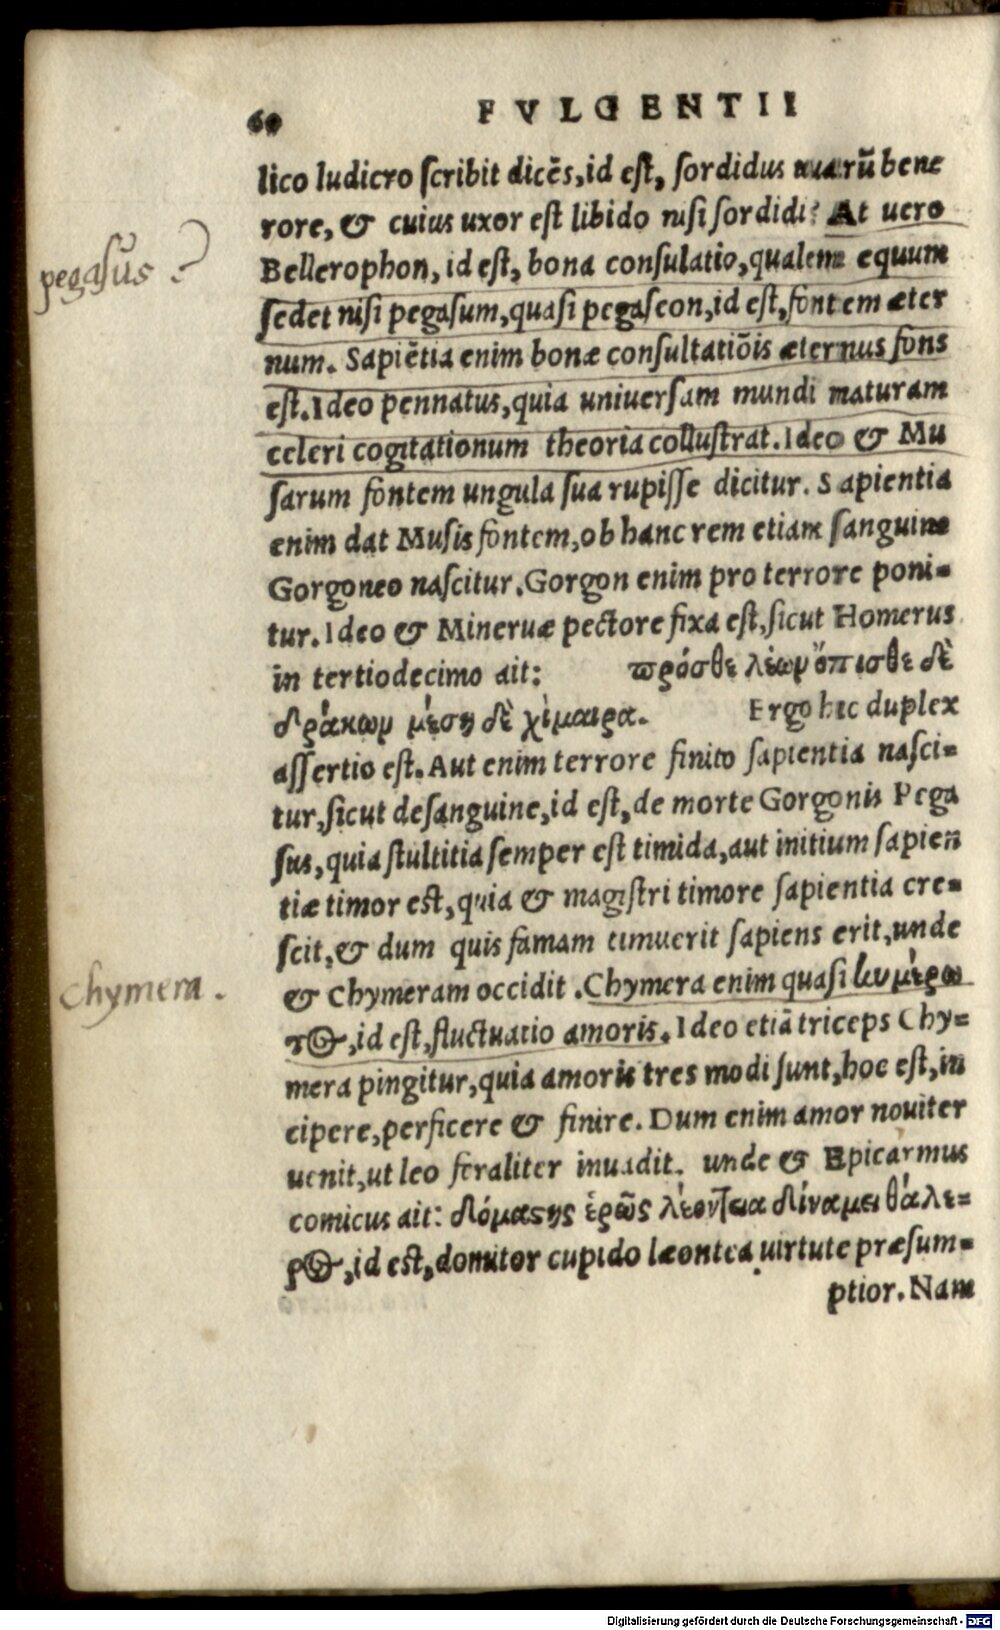 60
FVLGENTII
lico ludicro ſcribit dicẽs, id eſt, ſordidus rũ bene
rore, & cuius uxor eſt libido niſi ſordidi? At uero
Bellerophon, id eſt, bona conſulatio, qualem equum
ſedet niſi pegaſum, quaſi pegaſeon, id eſt, fontem æter
num. Sapiẽtia enim bonæ conſultatiõis æternus fons
eſt. Ideo pennatus, quia uniuerſam mundi naturam
celeri cogitationum theoria colluſtrat. Ideo & Mu
ſarum fontem ungula ſua rupiſſe dicitur. Sapientia
enim dat Muſis fontem, ob hanc rem etiam ſanguine
Gorgoneo naſcitur. Gorgon enim pro terrore poni-
tur. Ideo & Mineruæ pectore fixa eſt, ſicut Homerus
in tertiodecimo ait: πρόσθε λέων ὄπισθε δὲ
δράκων μέση δὲ χίμαιρα. Ergo hic duplex
aſſertio eſt. Aut enim terrore finito ſapientia naſci-
tur, ſicut de ſanguine, id eſt, de morte Gorgonis Pega
ſus, quia ſtultitia ſemper eſt timida, aut initium ſapien
tiæ timor eſt, quia & magiſtri timore ſapientia cre-
ſcit, & dum quis famam timuerit ſapiens erit, unde
& Chymeram occidit. Chymera enim quaſi
τος, id eſt, fluctuatio amoris. Ideo etiã triceps Chy-
mera pingitur, quia amoris tres modi ſunt, hoc eſt, in
cipere, perficere & finire. Dum enim amor nouiter
uenit, ut leo feraliter inuadit. unde & Epicarmus
comicus ait: δόμαςης ἐρῶς λέοντεια δίναμει θάλε-
ρος, id eſt, domitor cupido læontea uirtute præſum-
ptior. Nam
pegasus?
Chymera.
Digitalisierung gefördert durch die Deutsche Forschungsgemeinschaft - DFG